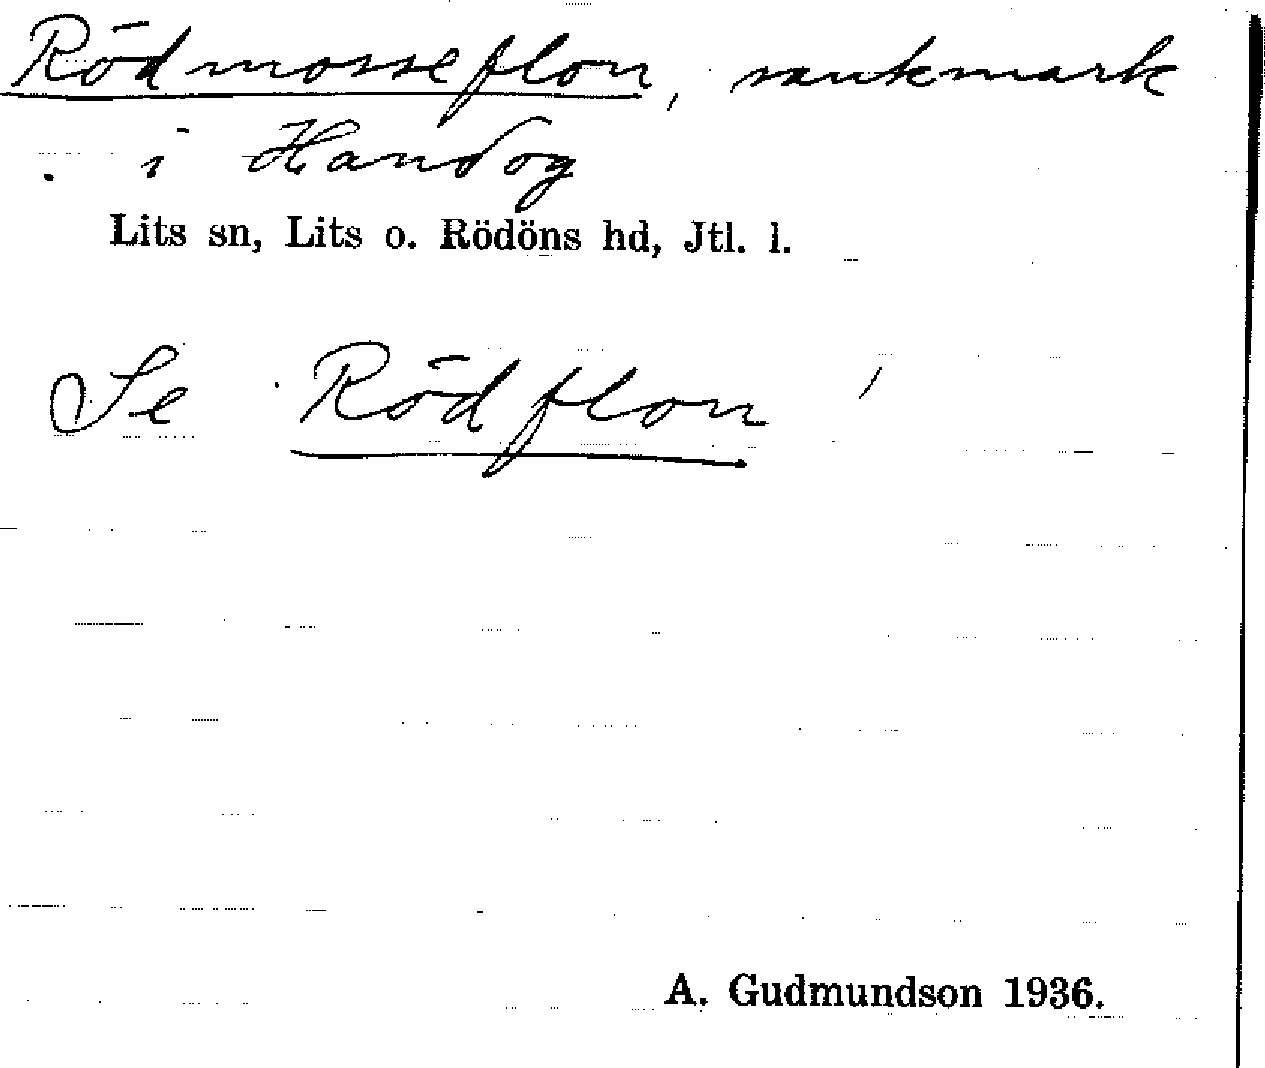 Rödmosseflon, sankmark
i Handog
Lits sn, Lits o. Rödöns hd, Jtl. l.
Se Rödflon
A. Gudmundson 1936.